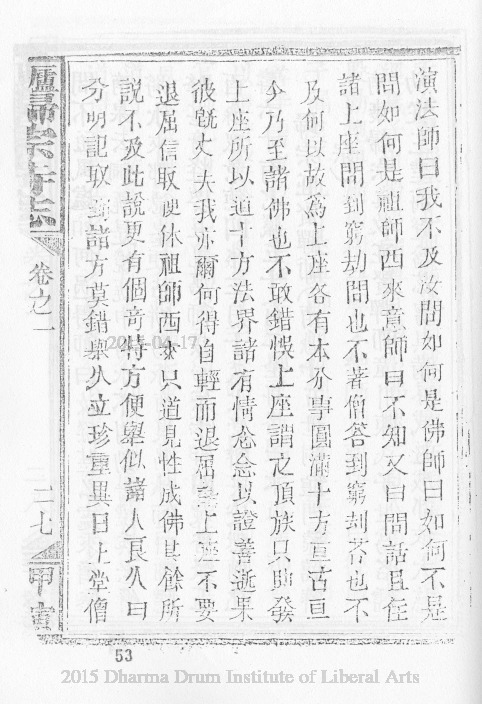 演法師曰我不及汝問如何是佛師曰如何不是
問如何是祖師西來意師曰不知又曰問話且住
諸上座問到窮劫問也不著僧答到窮刼荅也不
及何以故為上座各有本分事圓滿十方亘古亘
今乃至諸佛也不敢錯悞上座謂之頂族只助發
上座所以道十方法界諸有情念念以證善逝果
彼旣丈夫我亦爾何得自輕而退屈諸上座不要
退屈信取便休祖師西來只道見性成佛其餘所
說不及此說更有個奇特方便舉似諸人良久曰
分明記取到諸方莫錯舉久立珍重異日上堂僧
廬歸宗寺志
卷之一
二七
甲寅
2015-04-17
53
2015 Dharma Drum Institute of Liberal Arts